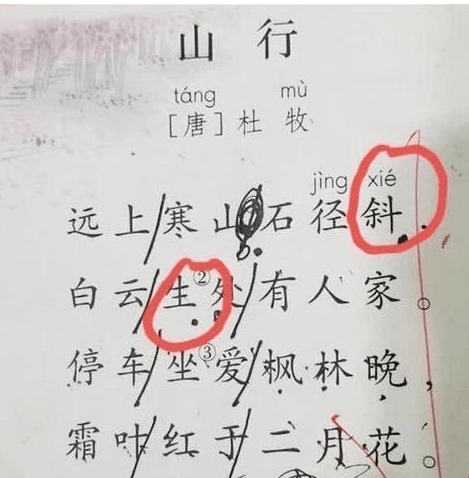 山行
táng mù
[唐]杜牧
jìng xié
远上寒山石径斜
白云生②处有人家。
停车坐③爱枫林晚，
霜叶红于二月花。